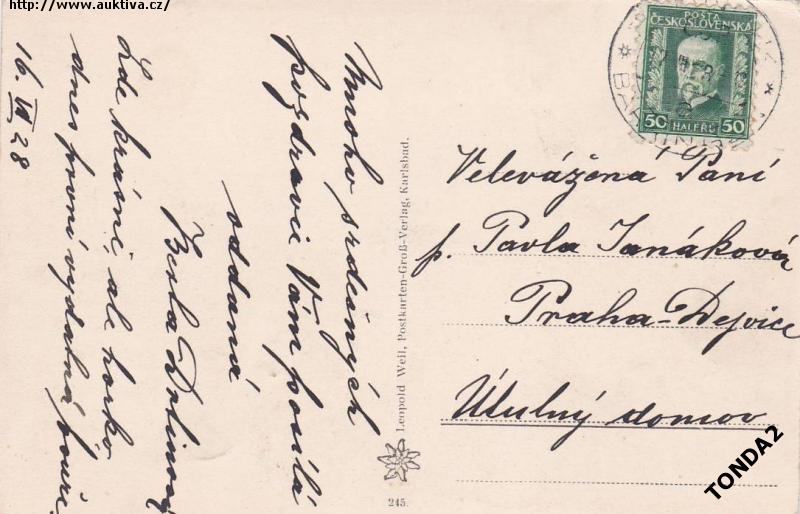 http://www.auktiva.cz/
Mnoho srdečných
pozdravů Vám posílá
oddaná
Berta
Zde krásně, ale horko
dnes první vydatná bouře.
16. VII 28
Leopold Weil, Postkarten-Groß-Verlag, Karlsbad.
245.
POŠTA
ČESKOSLOVENSKÁ
50 HALÉŘŮ 50
Velevážená Paní
p. Pavla Janáková
Praha-Dejvice
Útulný domov
TONDA2